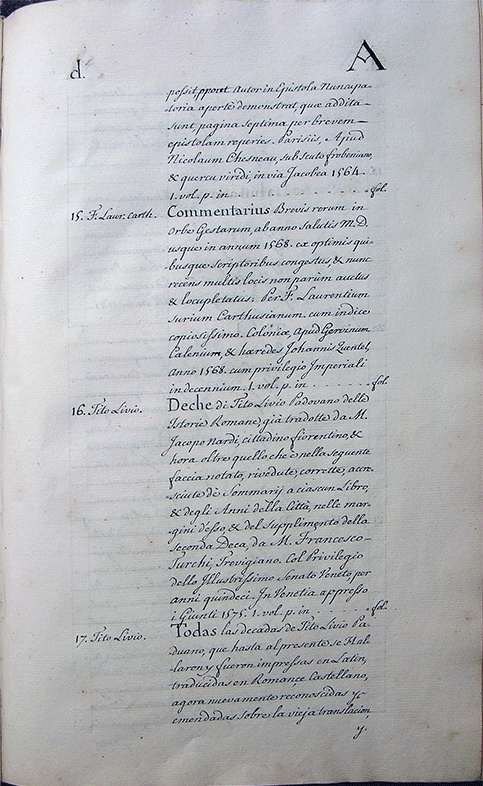 d.
A
possit, prout Autor in Epistola Nuncupa-
toria apertè demonstrat, quæ addita-
sunt pagina septima per brevem-
epistolam reperies. Parisiis, Apud
Nicolaum Chesneau, sub scuto frobeniano,
& quercu viridi, in via Jacobea 1564.
1. vol. p. in . . . . . . . . . fol.
15. F. Laur. Carth. Commentarius Brevis rerum in
Orbe Gestarum, ab anno Salutis M.D.
usque in annum 1568. ex optimis qui-
busque scriptoribus congestus, & nunc
recèns multis locis non parùm auctus
& locupletatus: Per F. Laurentium
Surium Carthusianum. cum indice
copiosissimo. Coloniæ, Apud Gervinum
Calenium, & hæredes Johannis Quentel,
Anno 1568. cum privilegio Imperiali
in decennium. 1. vol. p. in . . . . . . fol.
16. Tito Livio. Deche di Tito Livio Padovano delle
Istorie Romane, già tradotte da M.
Jacopo Nardi, cittadino fiorentino, &
hora oltre quello che è nella seguente
faccia notato, rivedute, corrette, accre-
sciute de Sommarij a ciascun Libro,
& degli Anni della Città, nelle mar-
gini d'esso, & del Supplimento della
Seconda Deca, da M. Francesco-
Turchi, Trevigiano. Col Privilegio
dello Illustrissimo Senato Veneto per
anni quindeci. In Venetia appresso
i Giunti 1575. 1. vol. p. in . . . . . . fol.
17. Tito Livio. Todas las decadas de Tito Livio Pa-
duano, que hasta al presente se Hal-
laron y fueron impressas en Latin,
traducidas en Romance Castellano,
agora nuevamente reconoscidas y
emendadas sobre la vieja translacion,
y.